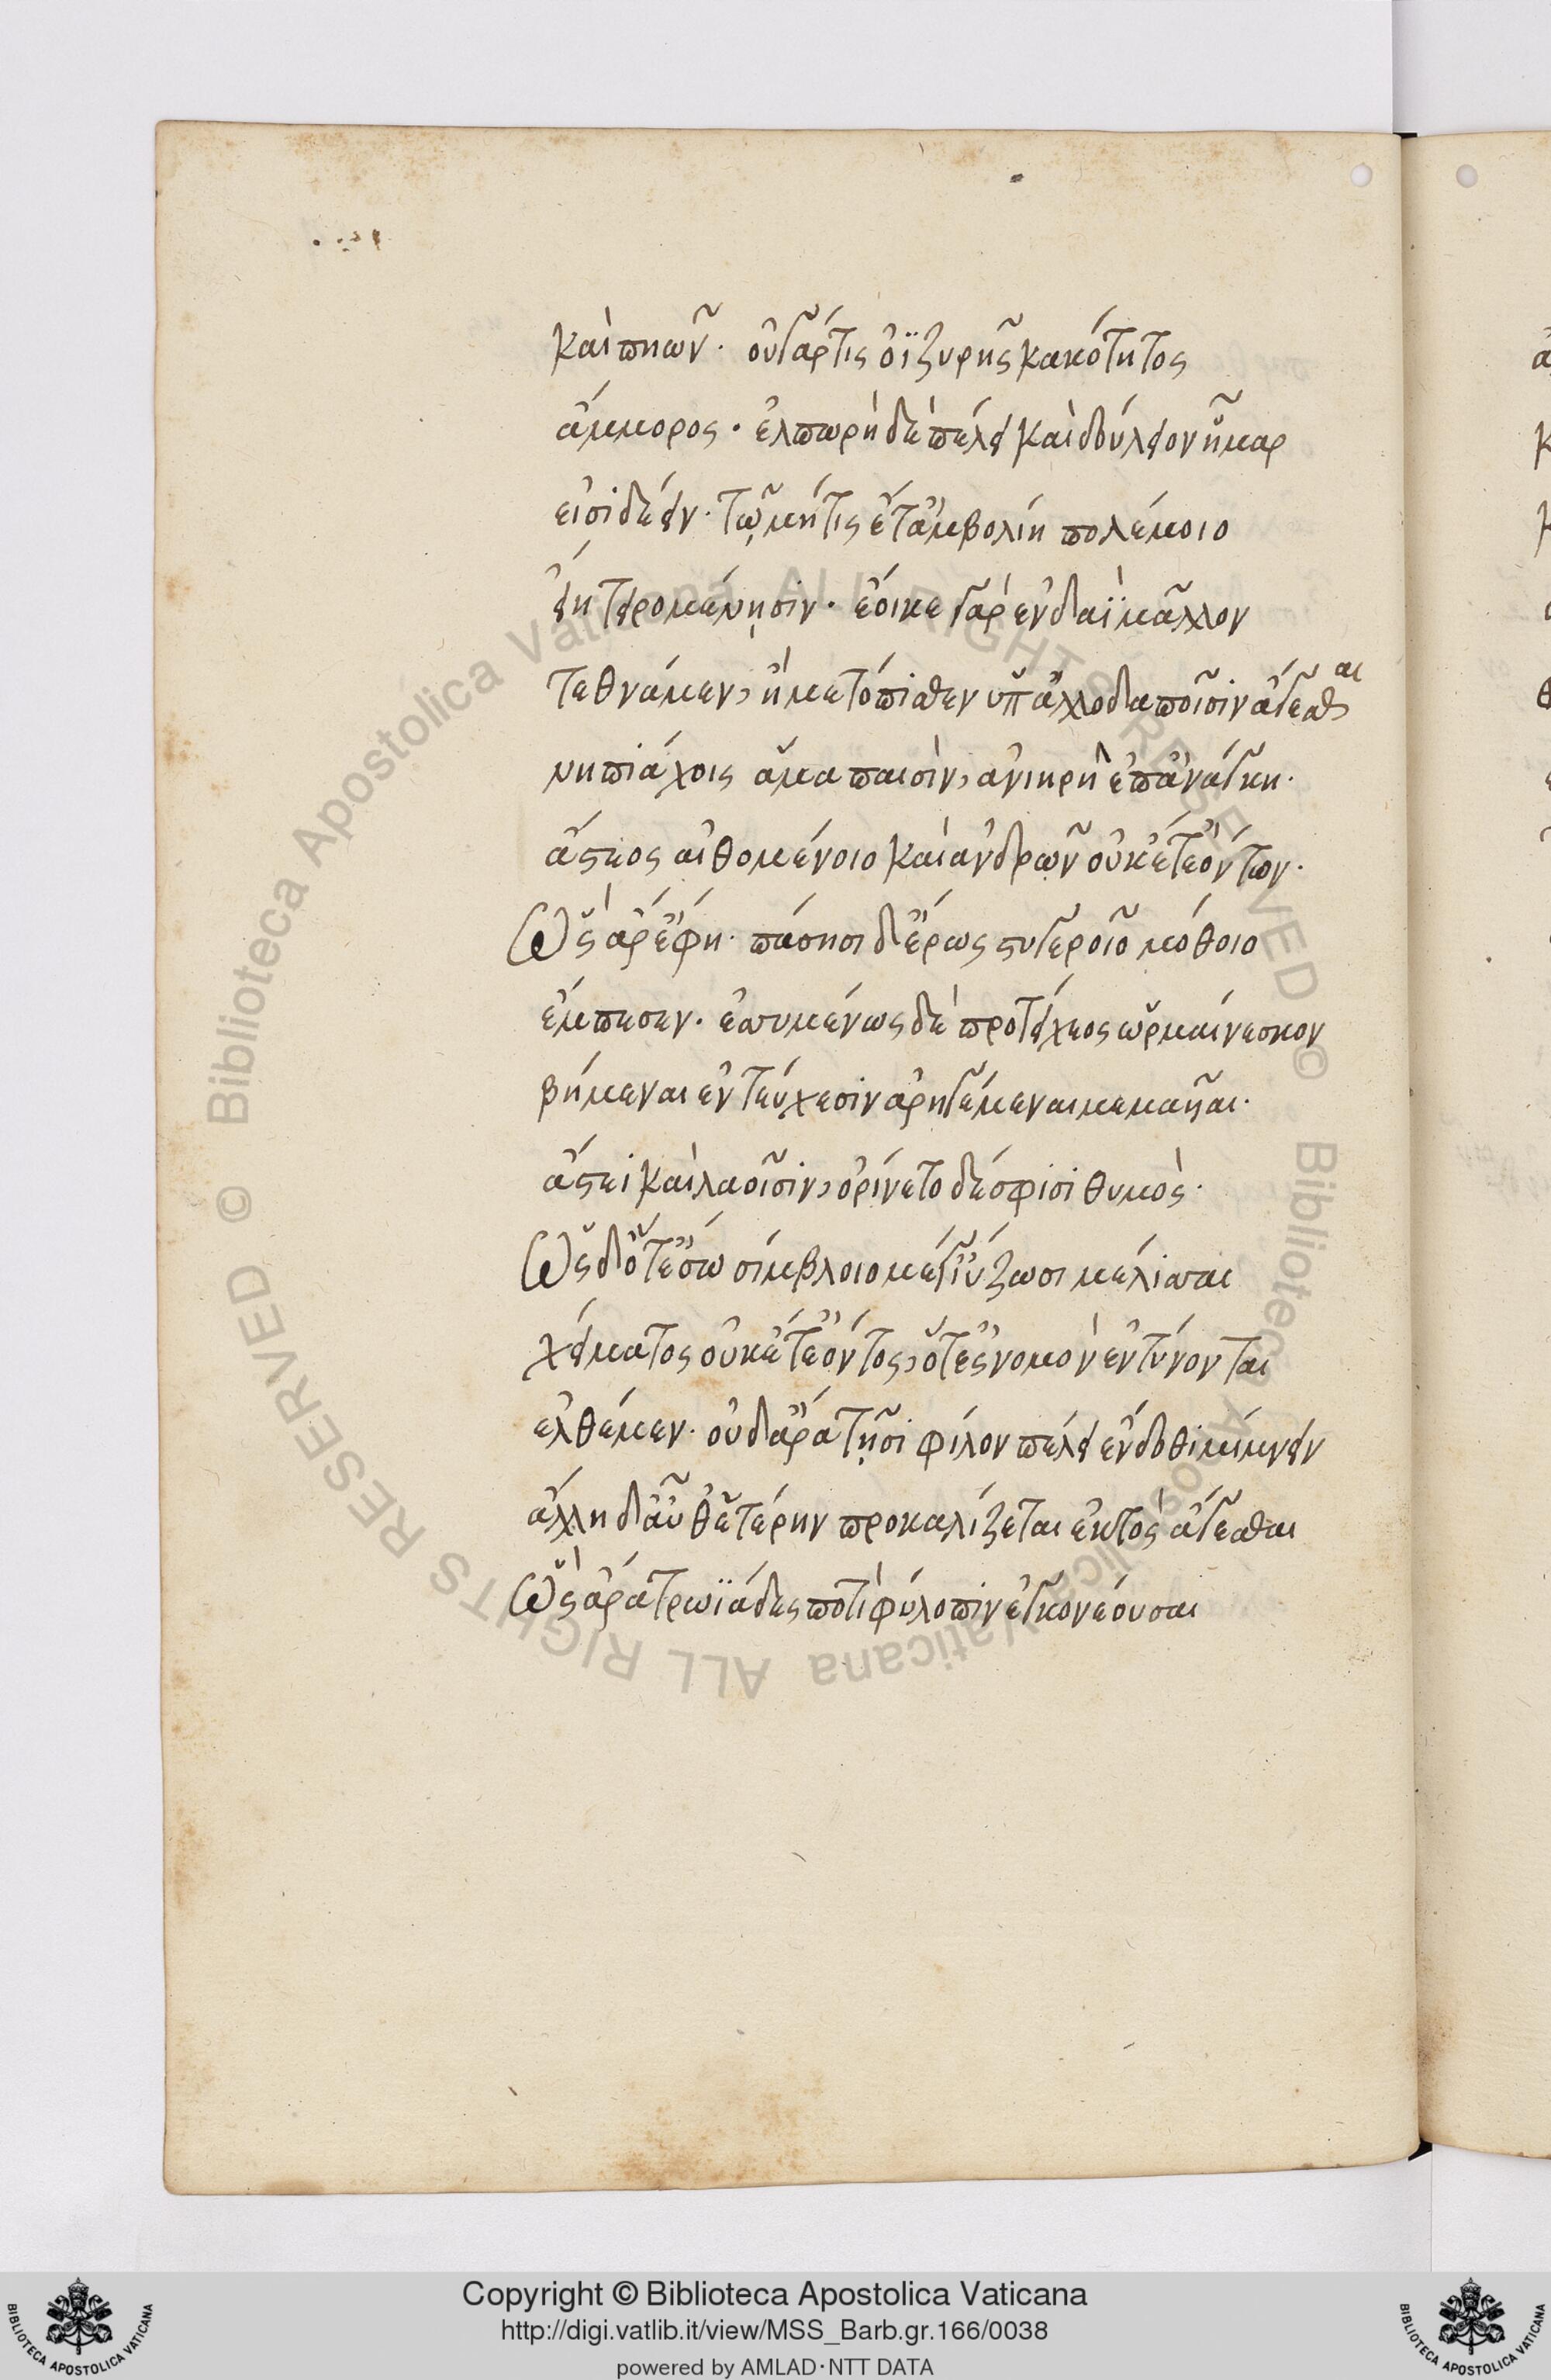 καὶ πηῶν· οὐ γάρ τις ὀϊζυρῆς κακότητος
ἄμμορος· ἐλπωρὴ δὲ πέλει καὶ δούλειον ἦμαρ
εἰσιδέειν· τῷ μήτις ἔτ' ἀμβολίη πολέμοιο
εἴη τειρομένῃσιν· ἔοικε γὰρ ἐν δαῒ μᾶλλον
τεθνάμεν, ἢ μετόπισθεν ὑπ' ἀλλοδαποῖσιν ἄγεσθαι
νηπιάχοις ἅμα παισὶν, ἀνιηρῇ ἐπ' ἀνάγκη·
ἄστεος αἰθομένοιο καὶ ἀνδρῶν οὐκέτ' ἐόντων·
Ὣς ἄρ' ἔφη· πάσησι δ' ἔρως στυγεροῖο μόθοιο
ἔμπεσεν· ἐσσυμένως δὲ προτείχεος ὡρμαίνεσκον
βήμεναι ἐν τεύχεσιν ἀρηγέμεναι μεμαῆαι·
ἄστει καὶ λαοῖσιν, ὀρίνετο δέ σφισι θυμὸς·
Ὣς δ' ὅτ' ἔσω σίμβλοιο μέγ' ἰΰζωσι μέλισσαι
χείματος οὐκέτ' ἐόντος, ὅτ' ἐς νομὸν ἐντύνονται
ἐλθέμεν· οὐδ' ἄρα τῇσι φίλον πέλει ἔνδοθι μίμνειν
ἄλλη δ' αὖθ' ἑτέρην προκαλίζεται ἐκτὸς ἄγεσθαι
Ὣς ἄρα τρωϊάδες ποτὶ φύλοπιν ἐγκονέουσαι
Copyright © Biblioteca Apostolica Vaticana
http://digi.vatlib.it/view/MSS_Barb.gr.166/0038
powered by AMLAD·NTT DATA